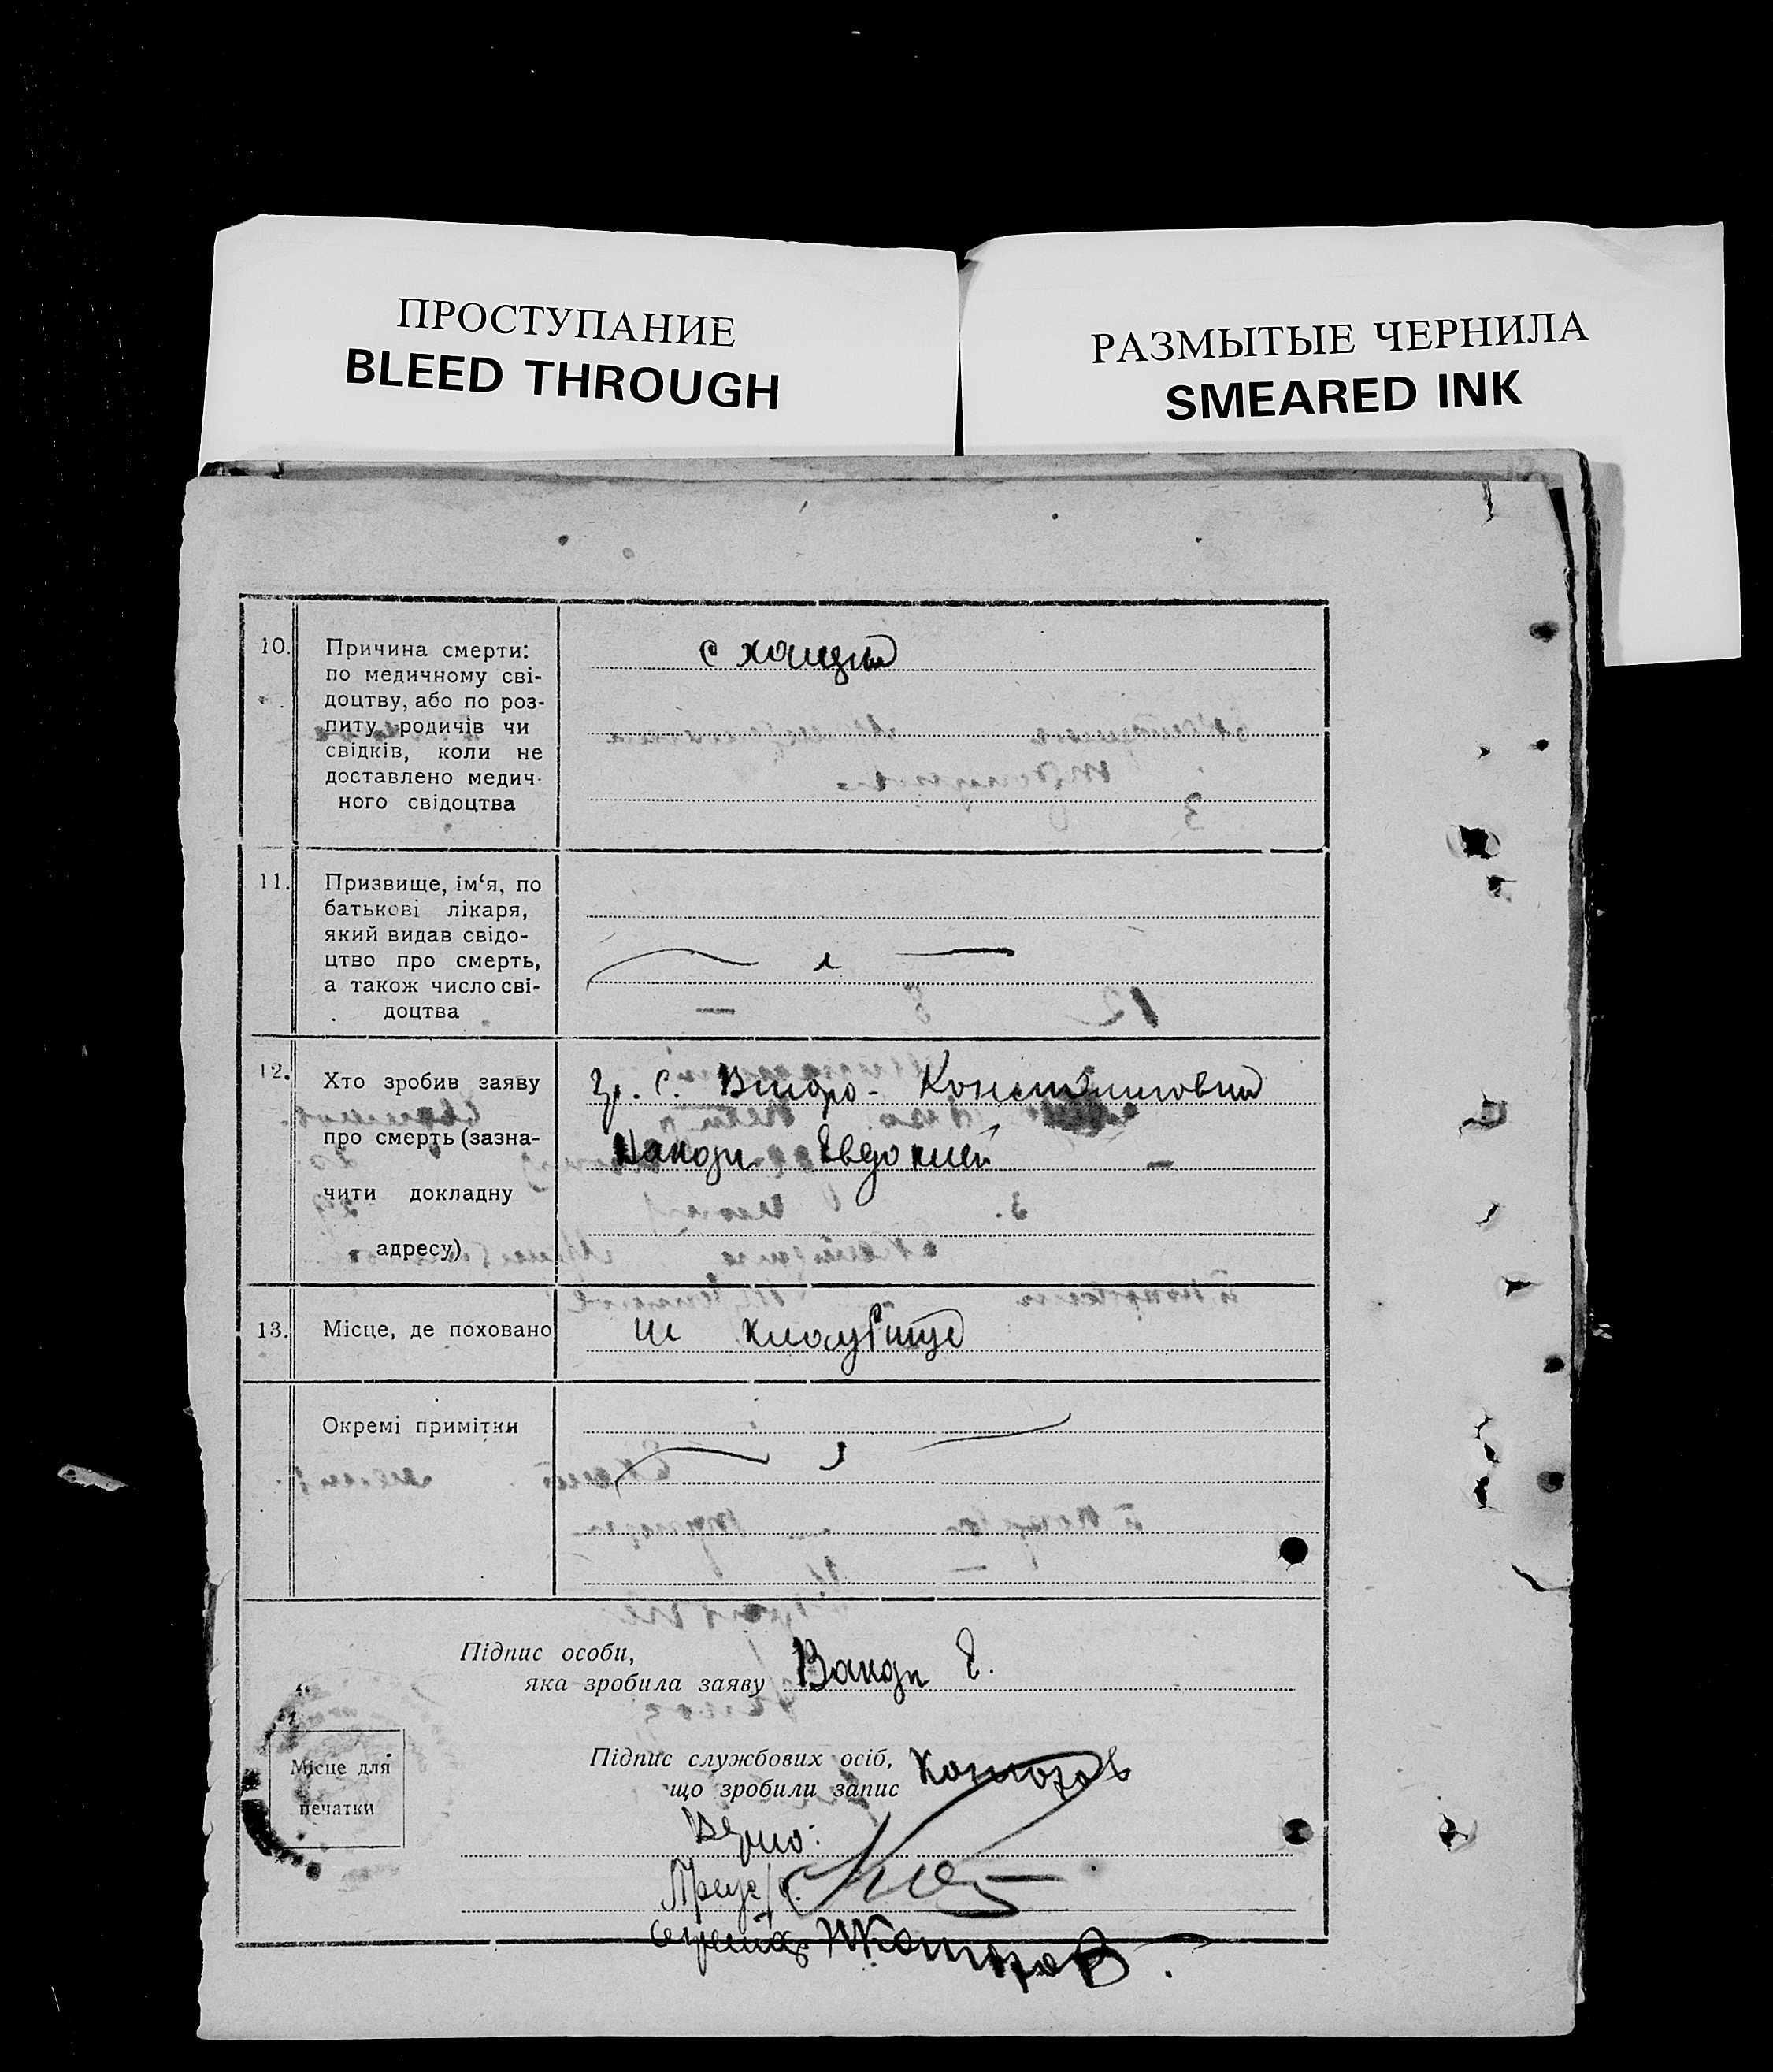 ПРОСТУПАНИЕ
BLEED THROUGH
РАЗМЫТЫЕ ЧЕРНИЛА
SMEARED INK
10.
Причина смерти:
по медичному сві-
доцтву, або по роз-
питу родичів чи
свідків, коли не
доставлено медич-
ного свідоцтва
с
11.
Призвище, ім‘я, по
батькові лікаря,
який видав свідо-
цтво про смерть,
а також число сві-
доцтва
12.
Хто зробив заяву
про смерть (зазна-
чити докладну
адресу)
Гр. с. Константиновки
Евдокией
13.
Місце, де поховано
На кладбище
Окремі примітки
Підпис особи,
яка зробила заяву
Е.
Місце для
печатки
Підпис службових осіб,
що зробили запис
Верно:
Пред с/с.
секретарь